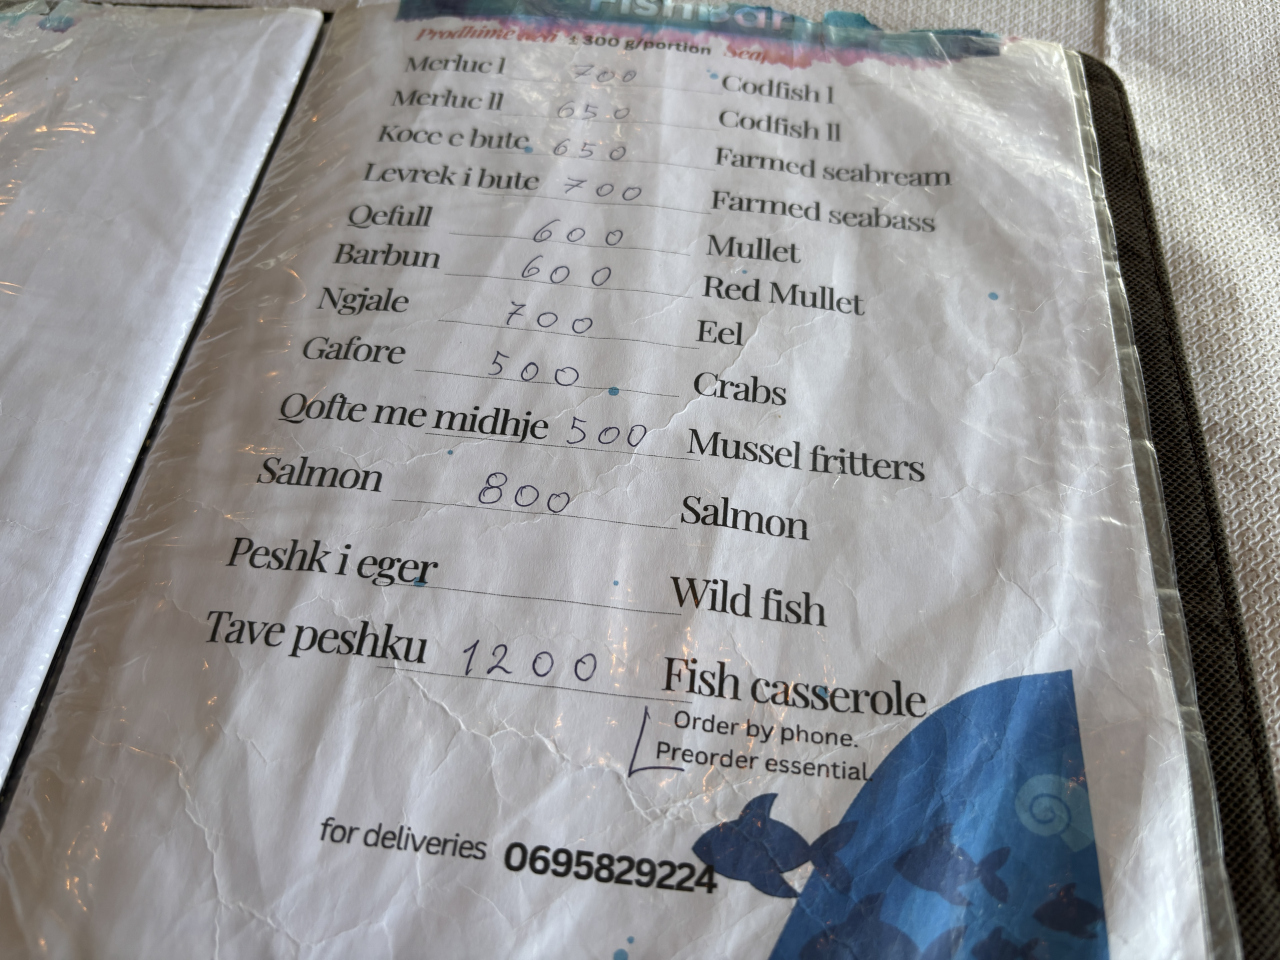 FishBar
Prodhime deti ± 300 g/portion
Merluc l 700 Codfish l
Merluc ll 650 Codfish ll
Koce e bute 650 Farmed seabream
Levrek i bute 700 Farmed seabass
Qefull 600 Mullet
Barbun 600 Red Mullet
Ngjale 700 Eel
Gafore 500 Crabs
Qofte me midhje 500 Mussel fritters
Salmon 800 Salmon
Peshk i eger Wild fish
Tave peshku 1200 Fish casserole
Order by phone.
Preorder essential.
for deliveries 0695829224